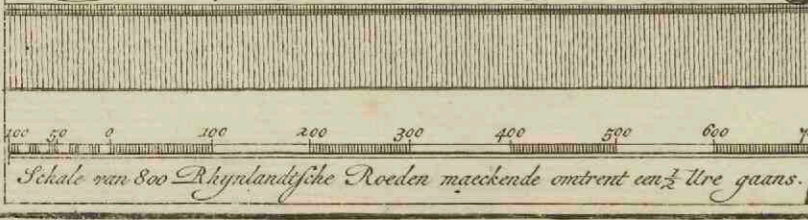 100 50 0 100 200 300 400 500 600
Schale van 800 Rhynlandtsche Roeden maeckende omtrent een ½ Ure gaans.